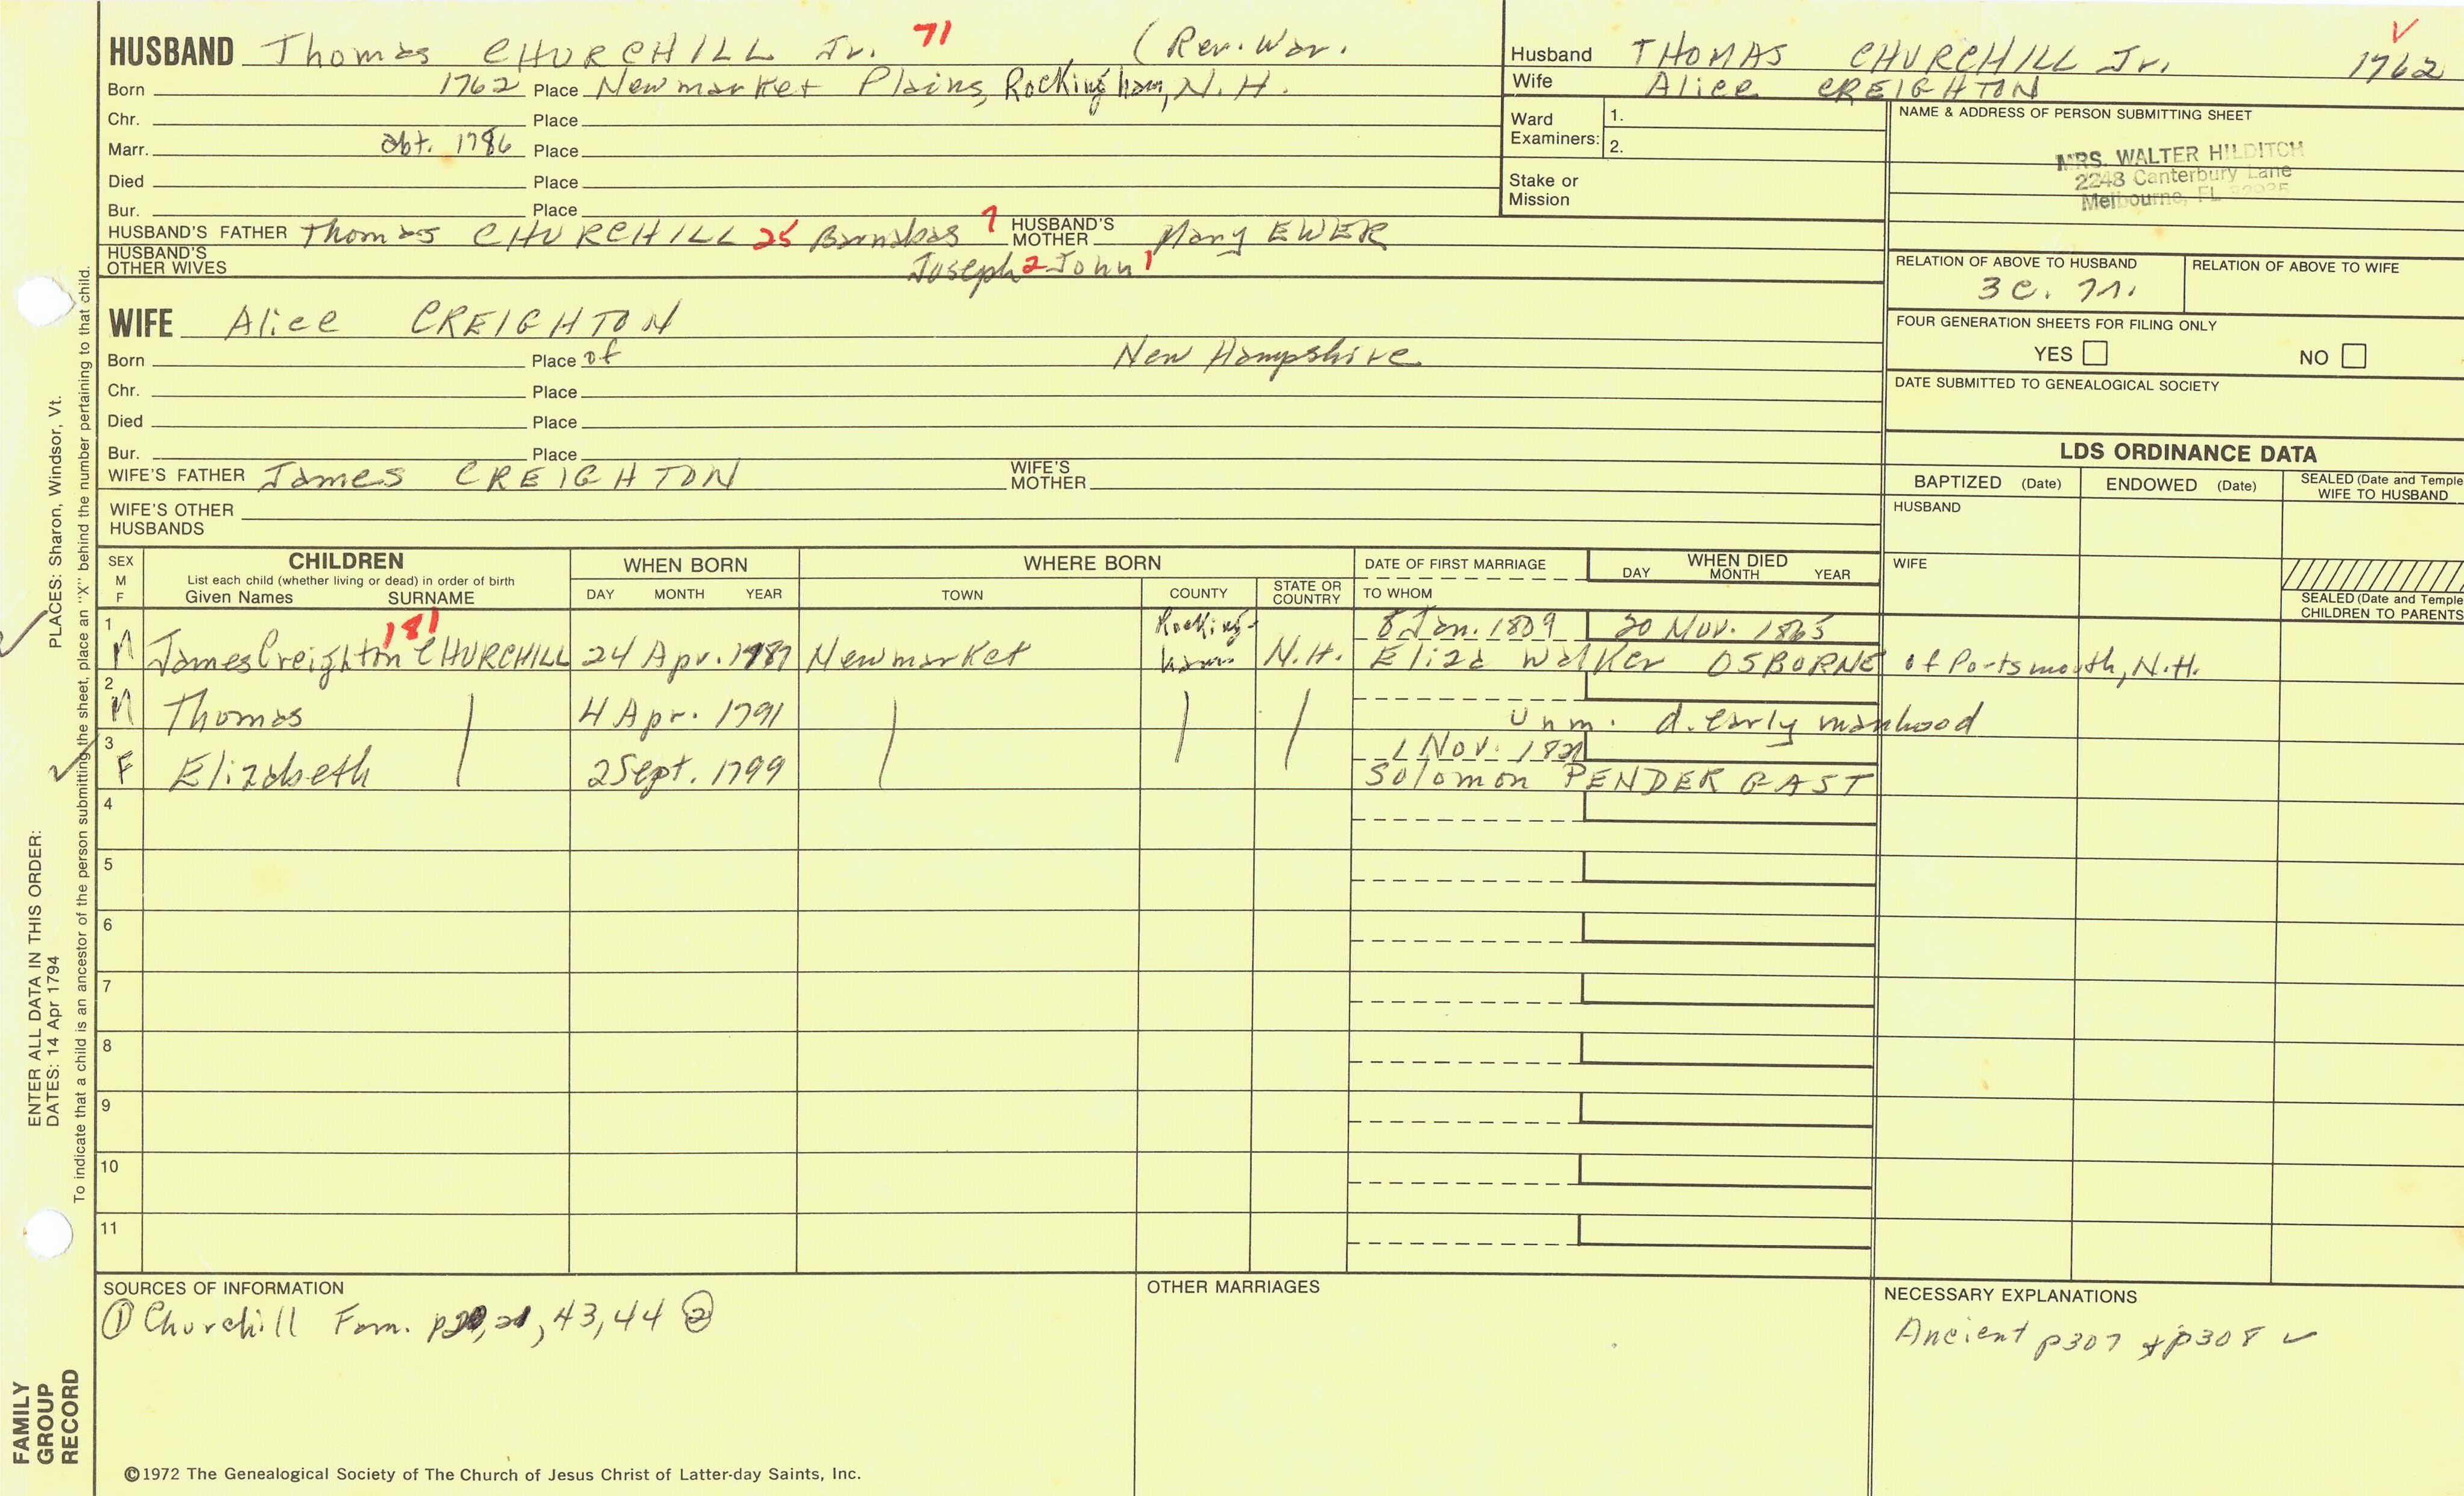 HUSBAND Thomas CHURCHILL Jr. 71 (Rev. War.
Born 1762 Place Newmarket Plains, Rockingham, N.H.
Chr. Place
Marr. abt. 1786 Place
Died Place
Bur. Place
HUSBAND'S FATHER Thomas CHURCHILL 25 Barnabas 7 HUSBAND'S MOTHER Mary EWER
HUSBAND'S OTHER WIVES Joseph 2 John 1
Husband THOMAS CHURCHILL Jr. 1762
Wife Alice CREIGHTON
Ward Examiners: 1.
2.
Stake or Mission
NAME & ADDRESS OF PERSON SUBMITTING SHEET
MRS. WALTER HILDITCH
2248 Canterbury Lane
Melbourne, FL 32935
RELATION OF ABOVE TO HUSBAND RELATION OF ABOVE TO WIFE
3c.
FOUR GENERATION SHEETS FOR FILING ONLY
YES NO
DATE SUBMITTED TO GENEALOGICAL SOCIETY
WIFE Alice CREIGHTON
Born Place of New Hampshire
Chr. Place
Died Place
Bur. Place
WIFE'S FATHER James CREIGHTON WIFE'S MOTHER
WIFE'S OTHER HUSBANDS
LDS ORDINANCE DATA
BAPTIZED (Date) ENDOWED (Date) SEALED (Date and Temple
WIFE TO HUSBAND
HUSBAND
WIFE
SEALED (Date and Temple
CHILDREN TO PARENTS
SEX M F CHILDREN WHEN BORN WHERE BORN DATE OF FIRST MARRIAGE WHEN DIED
List each child (whether living or dead) in order of birth
Given Names SURNAME DAY MONTH YEAR TOWN COUNTY STATE OR COUNTRY TO WHOM DAY MONTH YEAR
181 8 Jan. 1809 20 Nov. 1865
1 M James Creighton CHURCHILL 24 Apr. 1787 Newmarket Rockingham N.H. Eliza Walker OSBORNE of Portsmouth, N.H.
2 M Thomas 4 Apr. 1791 Unm. d. early manhood
1 Nov. 1821
3 F Elizabeth 2 Sept. 1799 Solomon PENDERGAST
4
5
6
7
8
9
10
11
SOURCES OF INFORMATION
① Churchill Fam. p20, 21, 43, 44 ②
OTHER MARRIAGES
NECESSARY EXPLANATIONS
Ancient p307 + p308 ✓
©1972 The Genealogical Society of The Church of Jesus Christ of Latter-day Saints, Inc.
ENTER ALL DATA IN THIS ORDER:
DATES: 14 Apr 1794 PLACES: Sharon, Windsor, Vt.
To indicate that a child is an ancestor of the person submitting the sheet, place an "X" behind the number pertaining to that child.
FAMILY
GROUP
RECORD